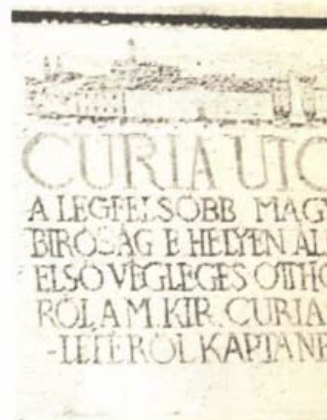 CURIA UTC
A LEGFELSŐBB MAGY
BIRÓSÁG E HELYEN ÁLL
ELSŐ VÉGLEGES OTTHO
RÓL A M. KIR. CURIA
-LETÉRŐL KAPTA NE